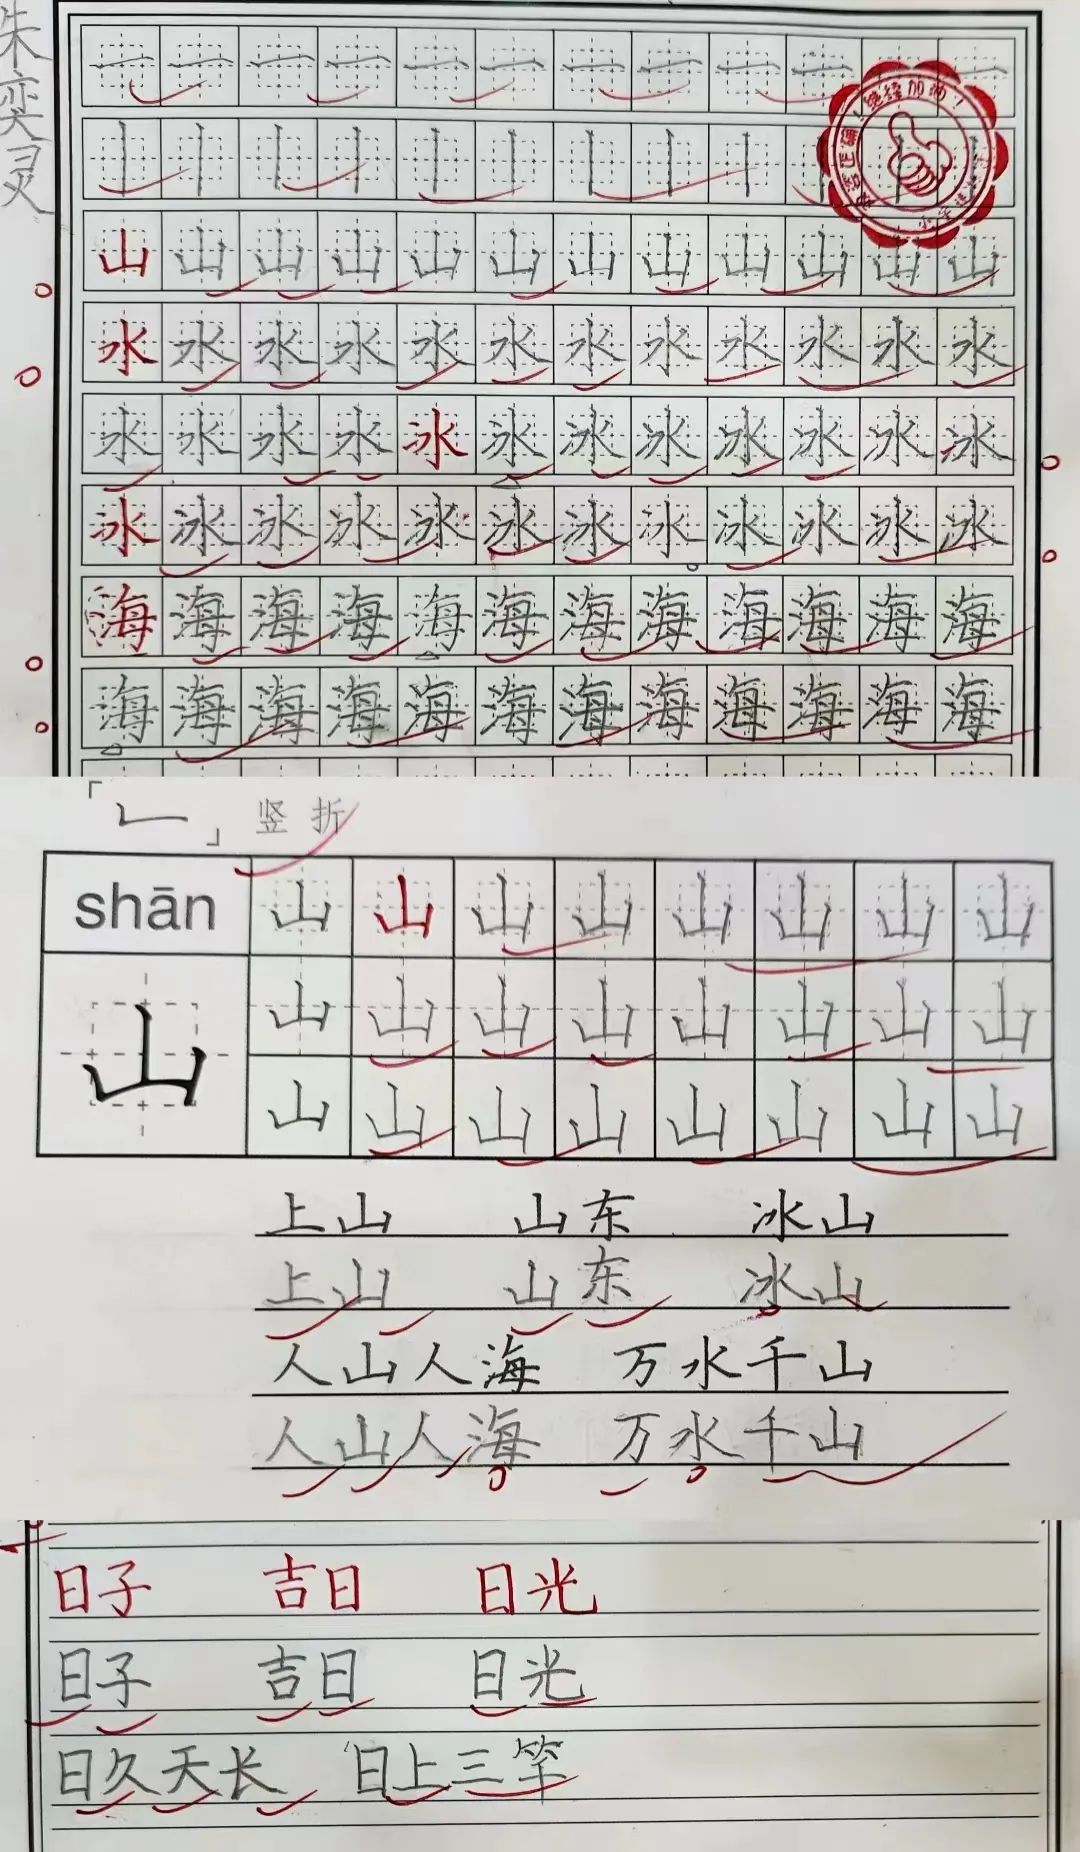 朱奕灵
一一一一一一一一一一一一
丨丨丨丨丨丨丨丨丨丨丨丨
继续加油！
山山山山山山山山山山山山
水水水水水水水水水水水水
水水水水冰冰冰冰冰冰冰冰
冰冰冰冰冰冰冰冰冰冰冰冰
海海海海海海海海海海海海
海海海海海海海海海海海海
「𠃊」竖折
shān
山
山山山山山山山山
山山山山山山山山
山山山山山山山山
上山 山东 冰山
上山 山东 冰山
人山人海 万水千山
人山人海 万水千山
日子 吉日 日光
日子 吉日 日光
日久天长 日上三竿